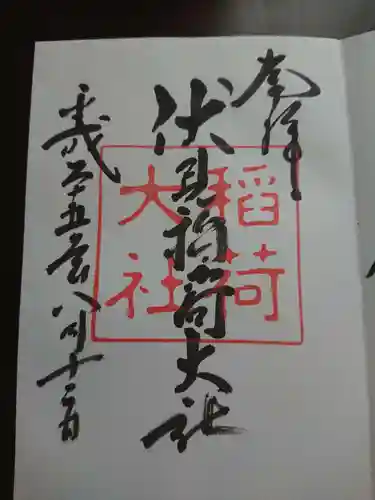 奉拝
伏見稲荷大社
平成二十五年八月十二日
稲荷
大社